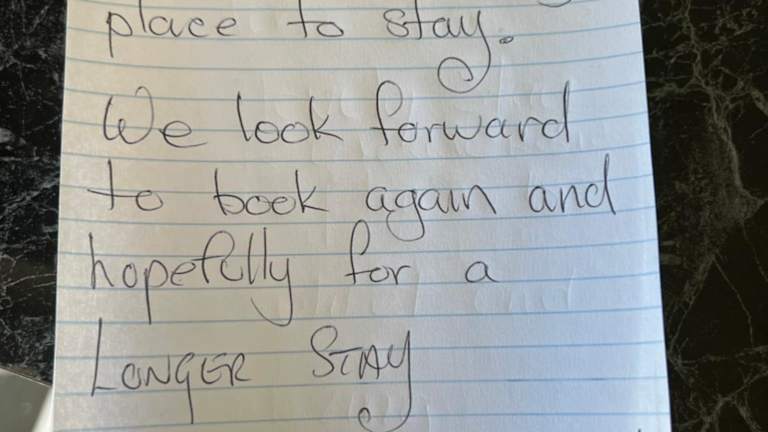 place to stay.
We look forward
to book again and
hopefully for a
LONGER STAY